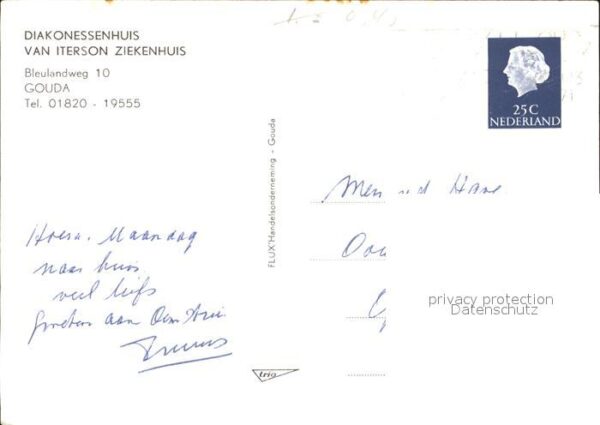 DIAKONESSENHUIS
VAN ITERSON ZIEKENHUIS
Bleulandweg 10
GOUDA
Tel. 01820 - 19555
25C
NEDERLAND
FLUX'Handelsonderneming - Gouda
Hoera. Maandag
naar huis
veel liefs
Groeten aan Oom Arie
trio
privacy protection
Datenschutz